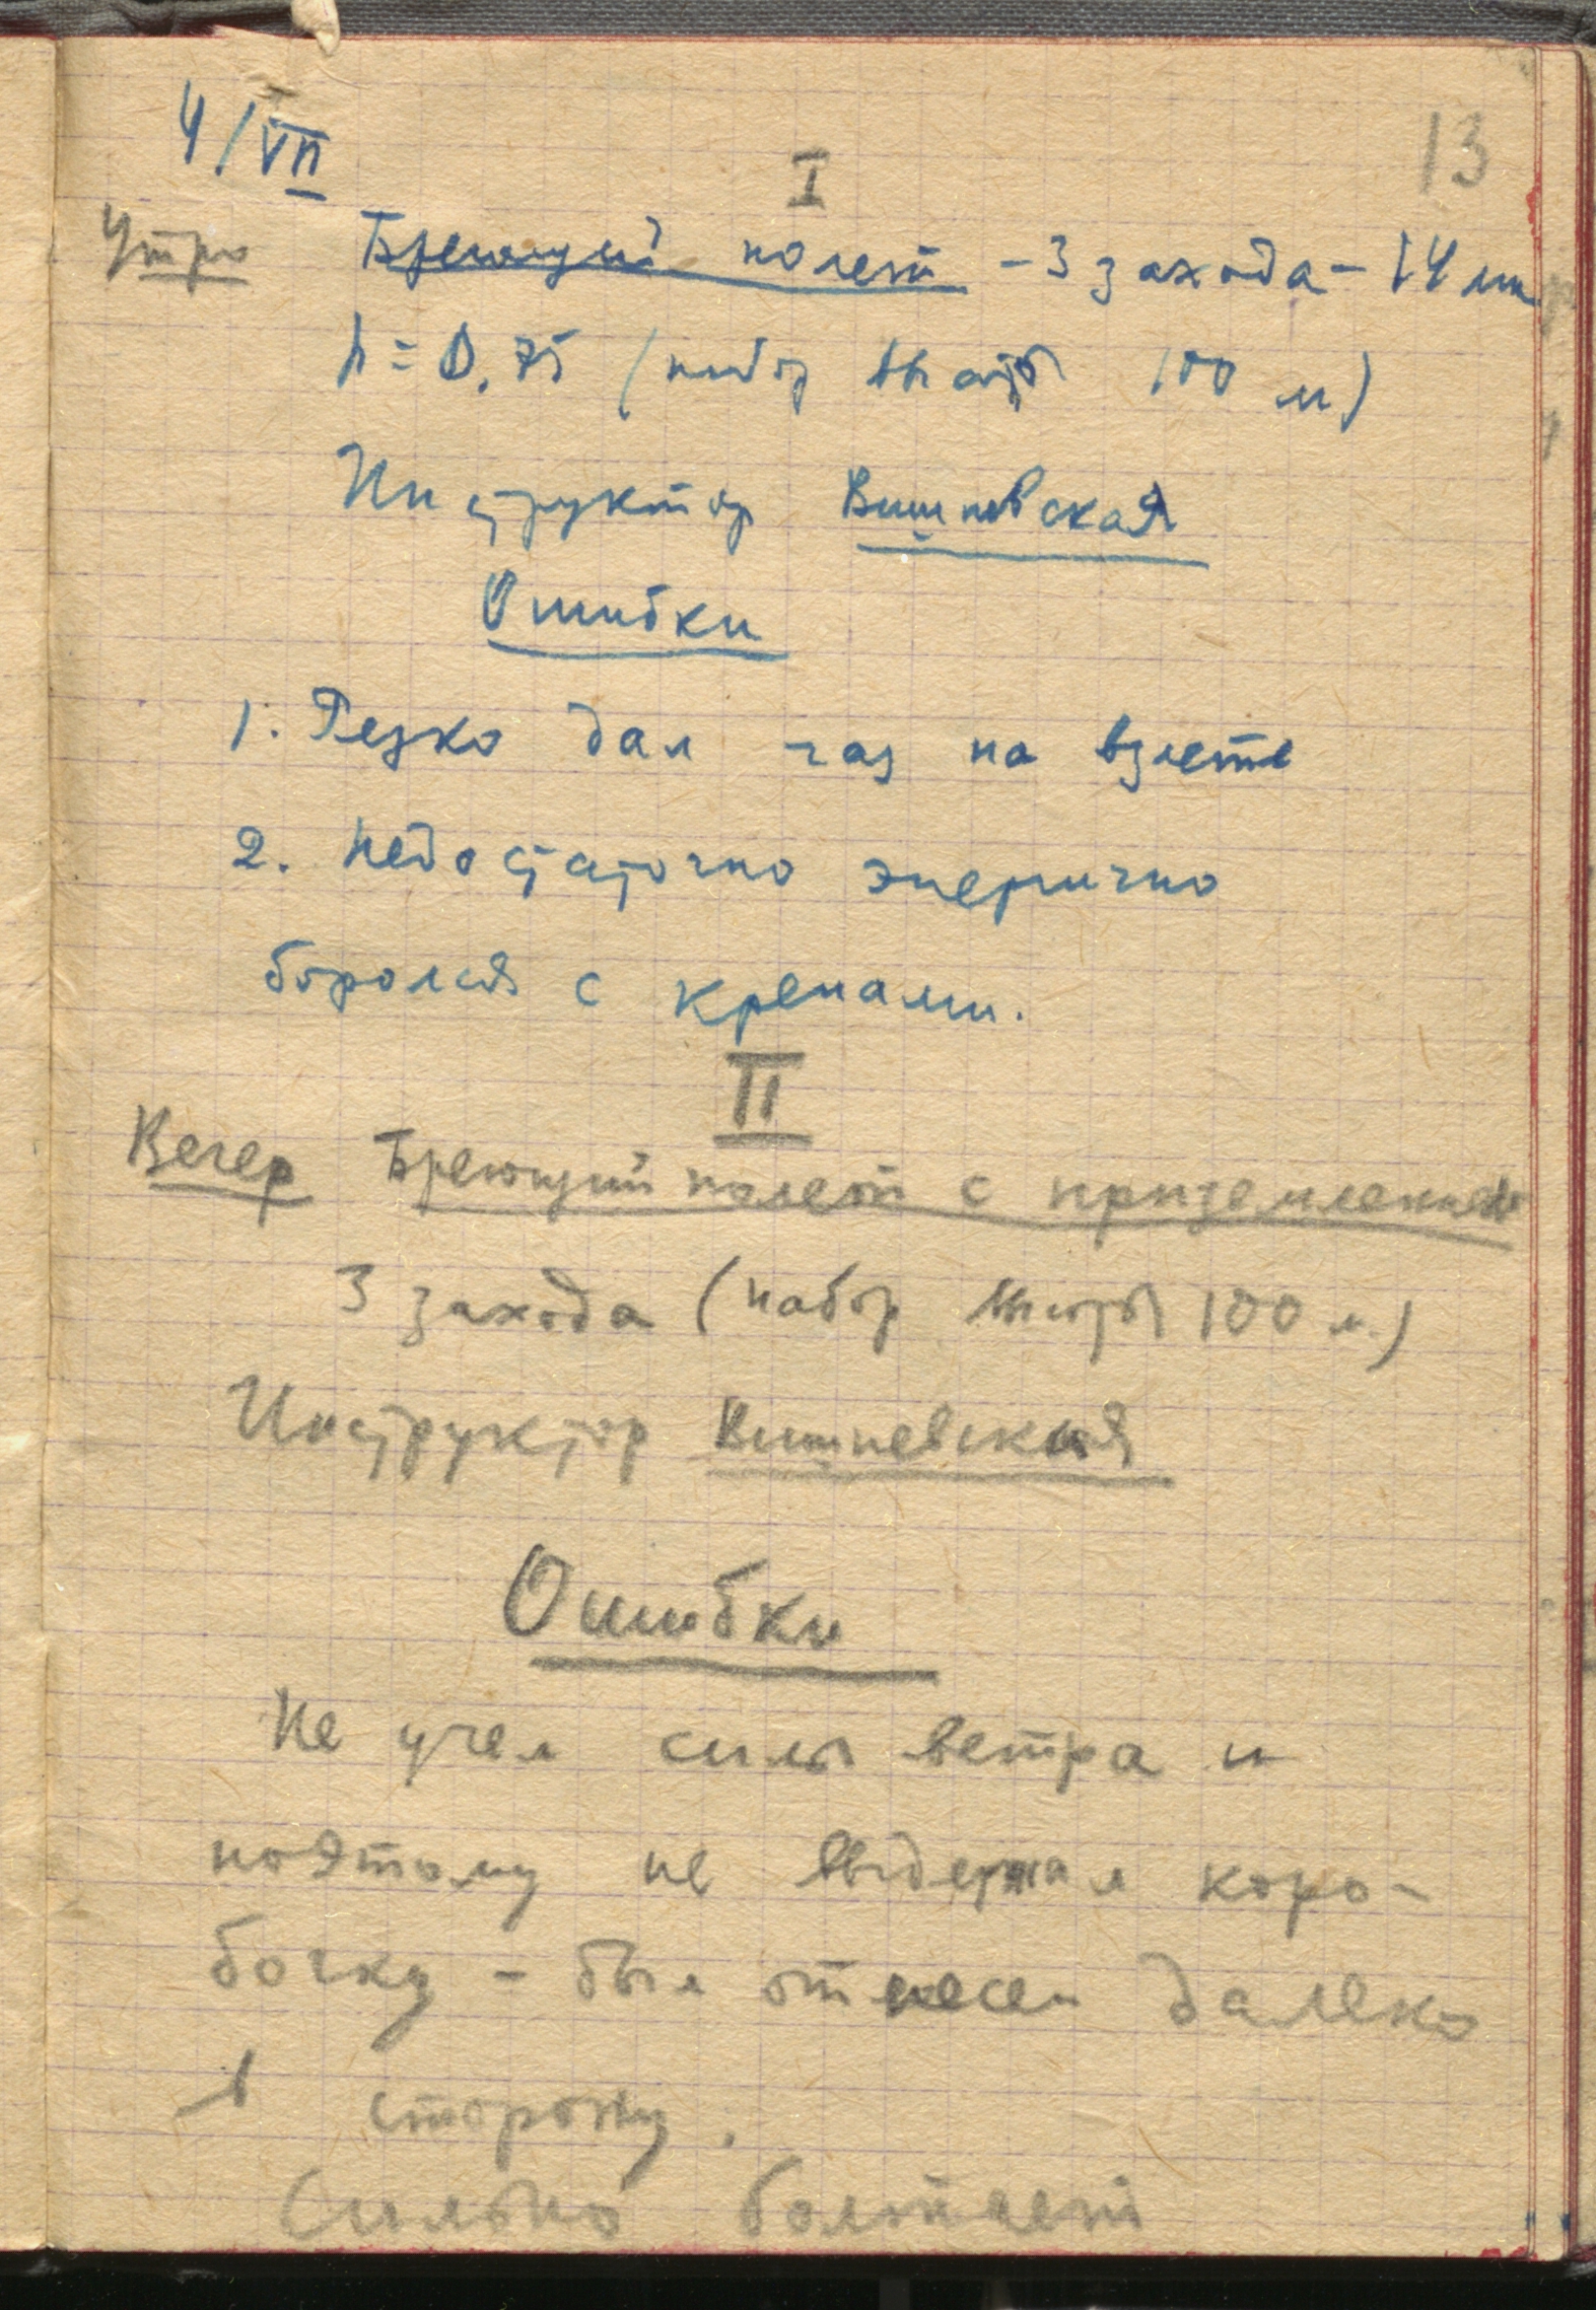 4/VII
13
I
Утро Бреющий полет - 3 захода - 14 мин
h = 0,75 (набор высоты 100 м)
Инструктор Вишневская
Ошибки
1. Резко дал газ на взлете
2. Недостаточно энергично
боролся с кренами.
II
Вечер Бреющий полет с приземлением
3 захода (набор высоты 100 м.)
Инструктор Вишневская
Ошибки
Не учел силы ветра и
поэтому не выдержал коро-
бочку - был отнесен далеко
в сторону.
Сильно болтает